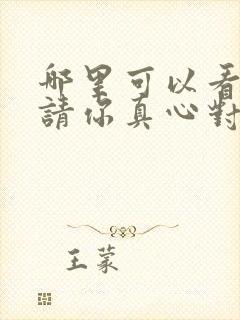 哪里可以看
請你真心對
王蒙